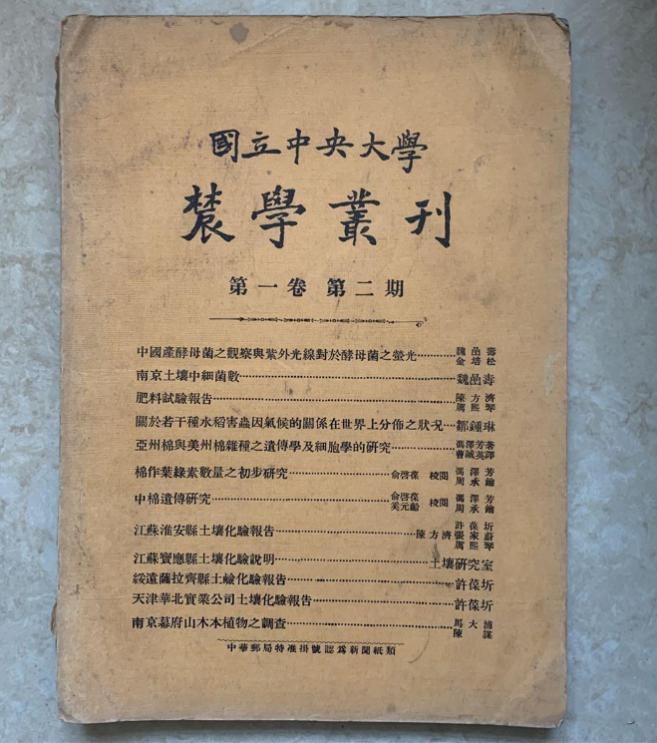 國立中央大學
農學叢刊
第一卷 第二期
中國產酵母菌之觀察與紫外光線對於酵母菌之螢光………魏嵒壽 金培松
南京土壤中細菌數………魏嵒壽
肥料試驗報告………陳方濟 周熙琴
關於若干種水稻害蟲因氣候的關係在世界上分佈之狀況…鄒鍾琳
亞州棉與美州棉雜種之遺傳學及細胞學的研究………馮澤芳著 曹誠英譯
棉作葉綠素數量之初步研究………俞啓葆 校閱 馮澤芳 周承鑰
中棉遺傳研究………俞啓葆 奚元齡 校閱 馮澤芳 周承鑰
江蘇淮安縣土壤化驗報告………陳方濟 許葆圻 張家蔚 周熙琴
江蘇寶應縣土壤化驗說明………土壤研究室
綏遠薩拉齊縣土鹼化驗報告………許葆圻
天津華北實業公司土壤化驗報告………許葆圻
南京幕府山木本植物之調查………馬大浦 陳謀
中華郵局特准掛號認爲新聞紙類